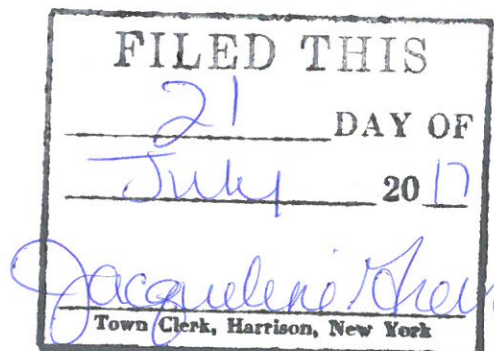 FILED THIS
21 DAY OF
July 20 17
Jacqueline
Town Clerk, Harrison, New York